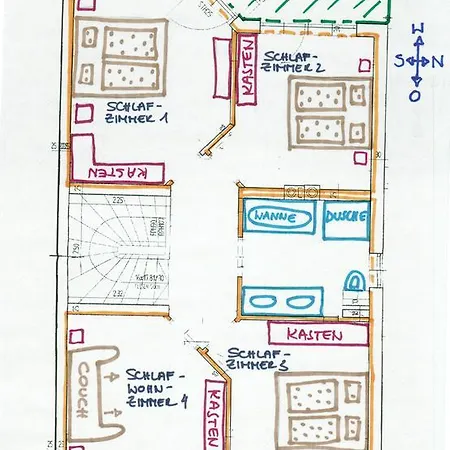 W
S N
O
SCHLAF-
ZIMMER 1
KASTEN
SCHLAF-
ZIMMER 2
KASTEN
WANNE
DUSCHE
225
250
232
SCHLAF-
WOHN-
ZIMMER 4
COUCH
SCHLAF-
ZIMMER 3
KASTEN
KASTEN